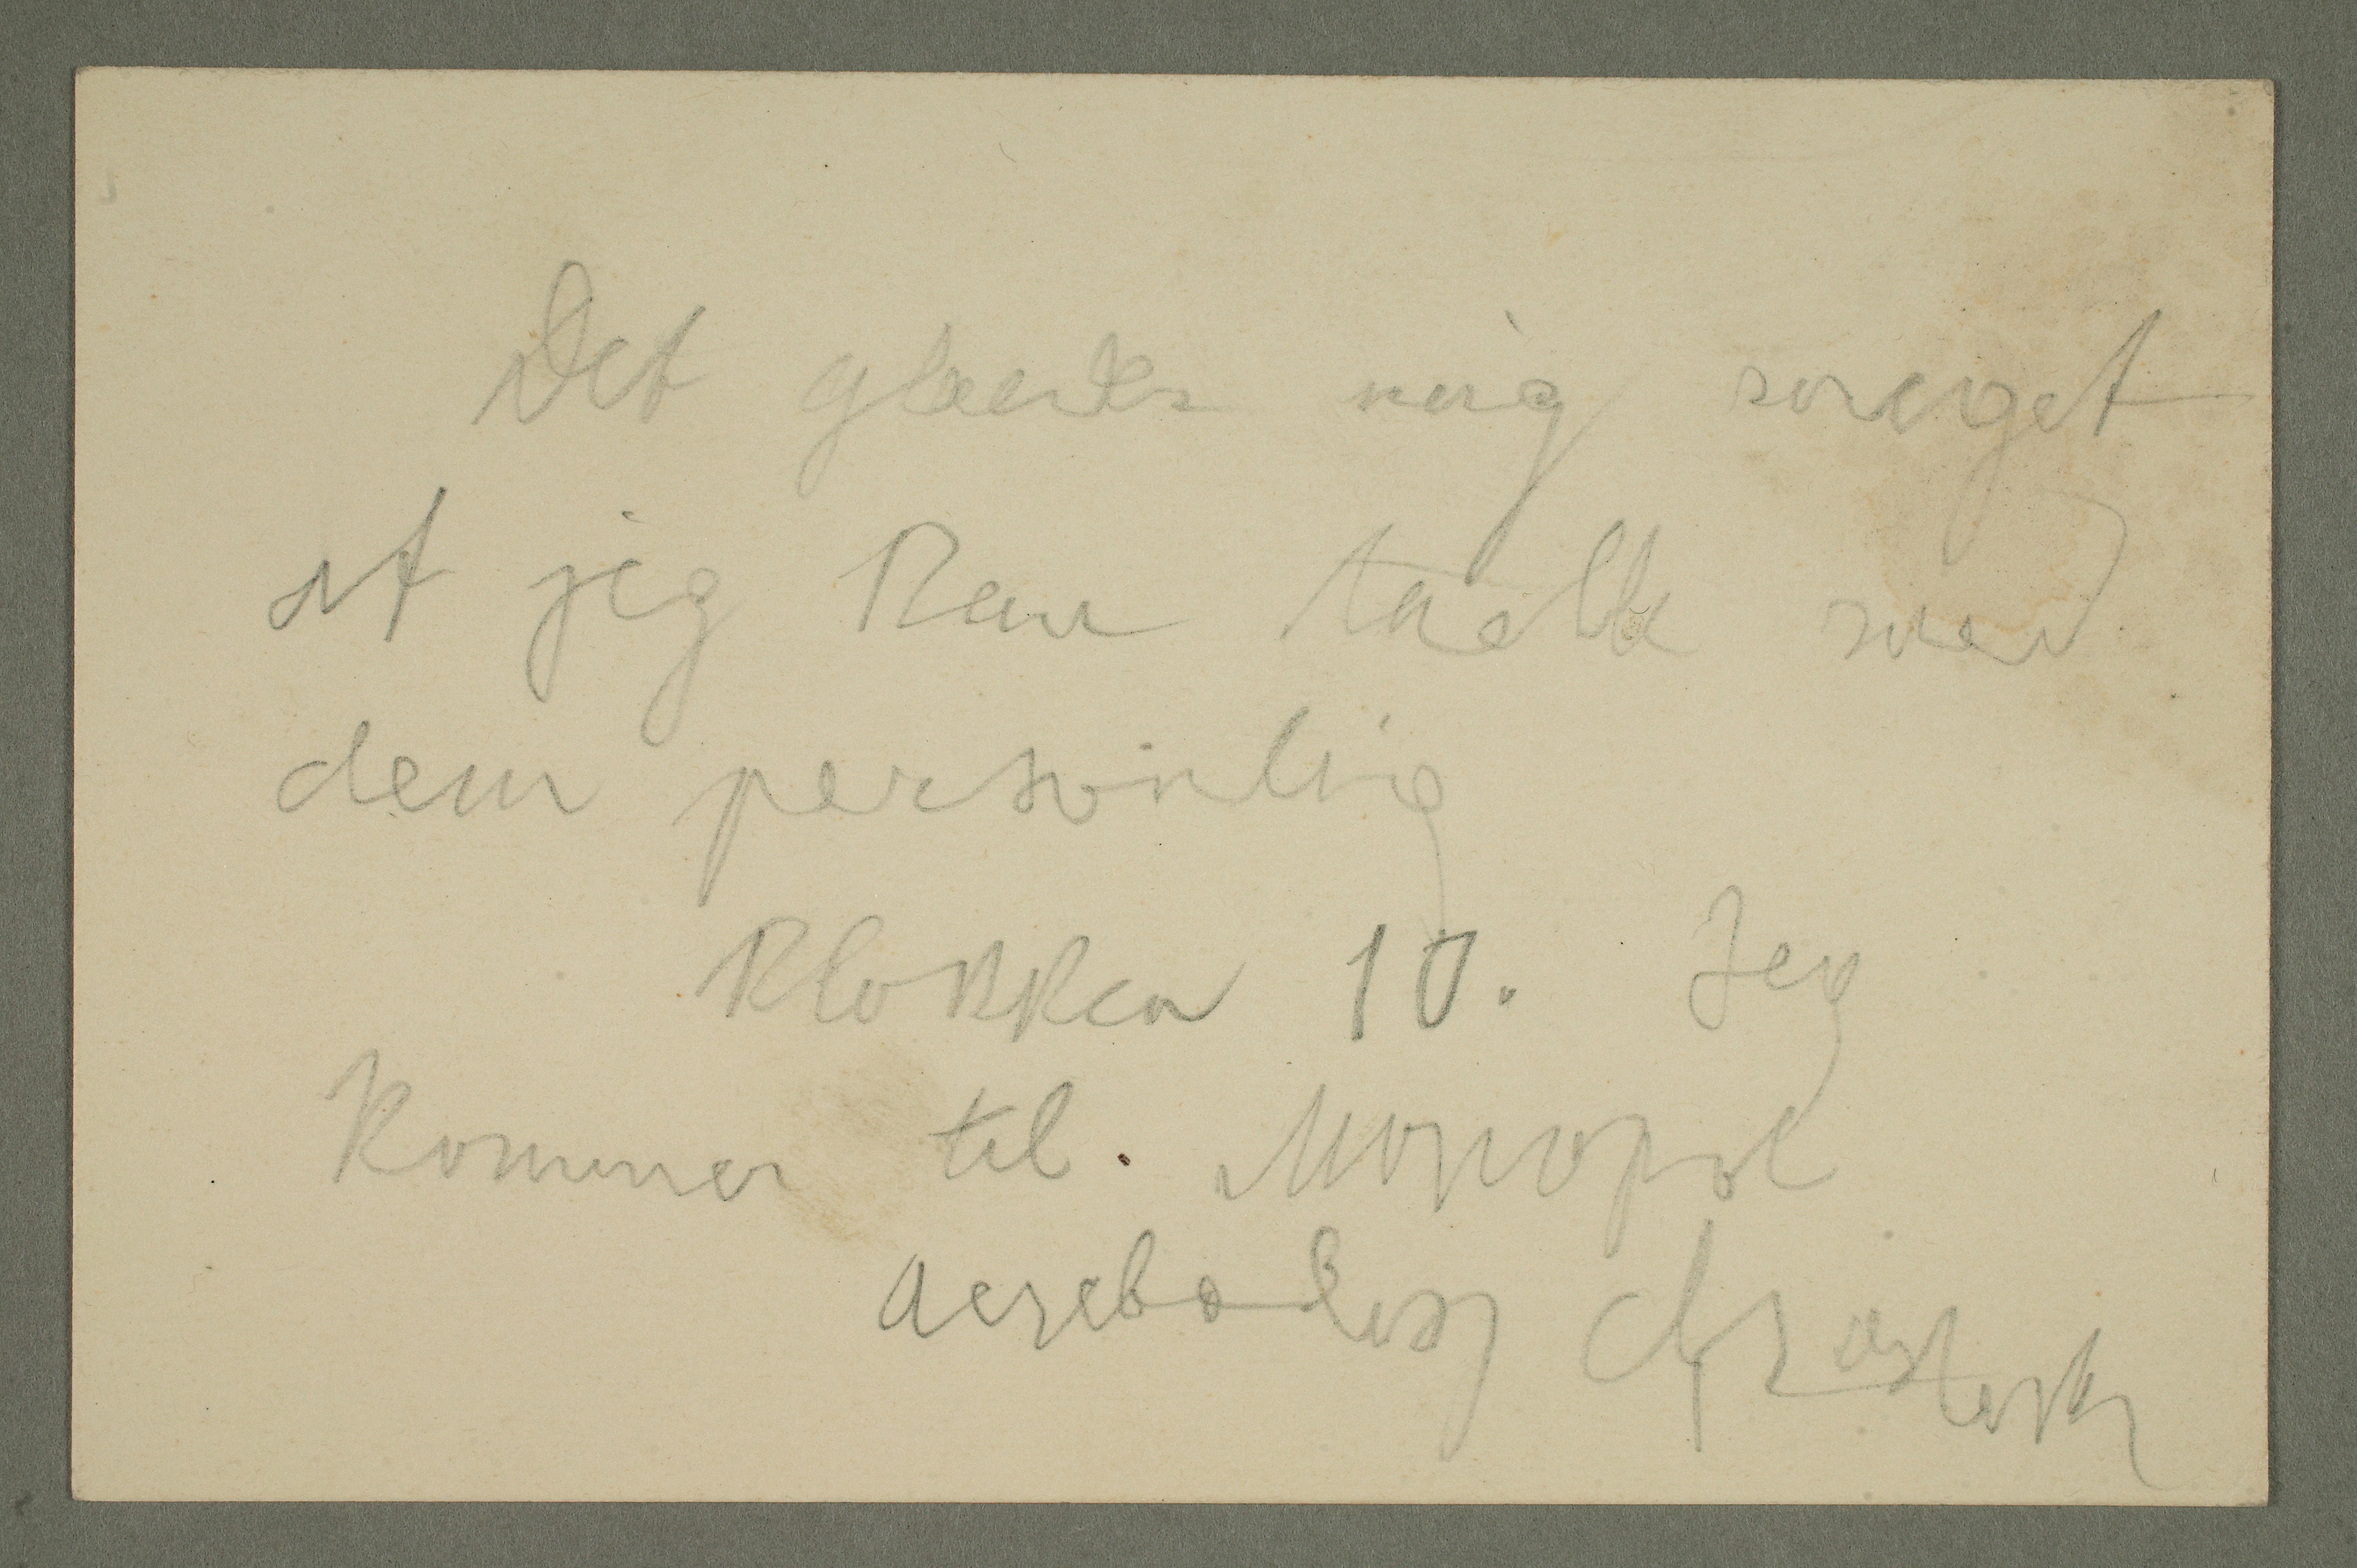 Det glæder mig meget
at jeg kan tælle med
dem personlig
Klokken 10. Jeg
kommer til Monopol
aerebødigs